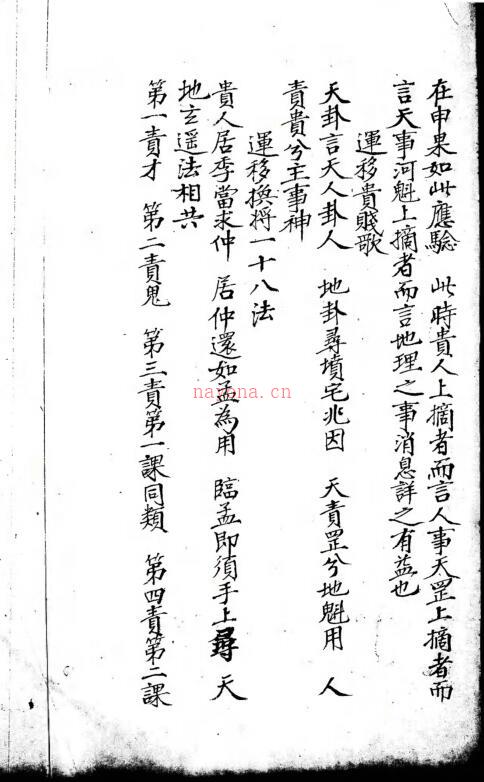 在申果如此應驗　此時貴人上摘者而言人事天罡上摘者而
言天事河魁上摘者而言地理之事消息詳之有益也
運移貴賤歌
天卦言天人卦人　地卦尋墳宅兆因　天責罡兮地魁用　人
責貴兮主事神
運移換將一十八法
貴人居季當求仲　居仲還如孟為用　臨孟即須手上尋　天
地玄遥法相共
第一責才　第二責鬼　第三責第一課同類　第四責第二課
nayona.cn